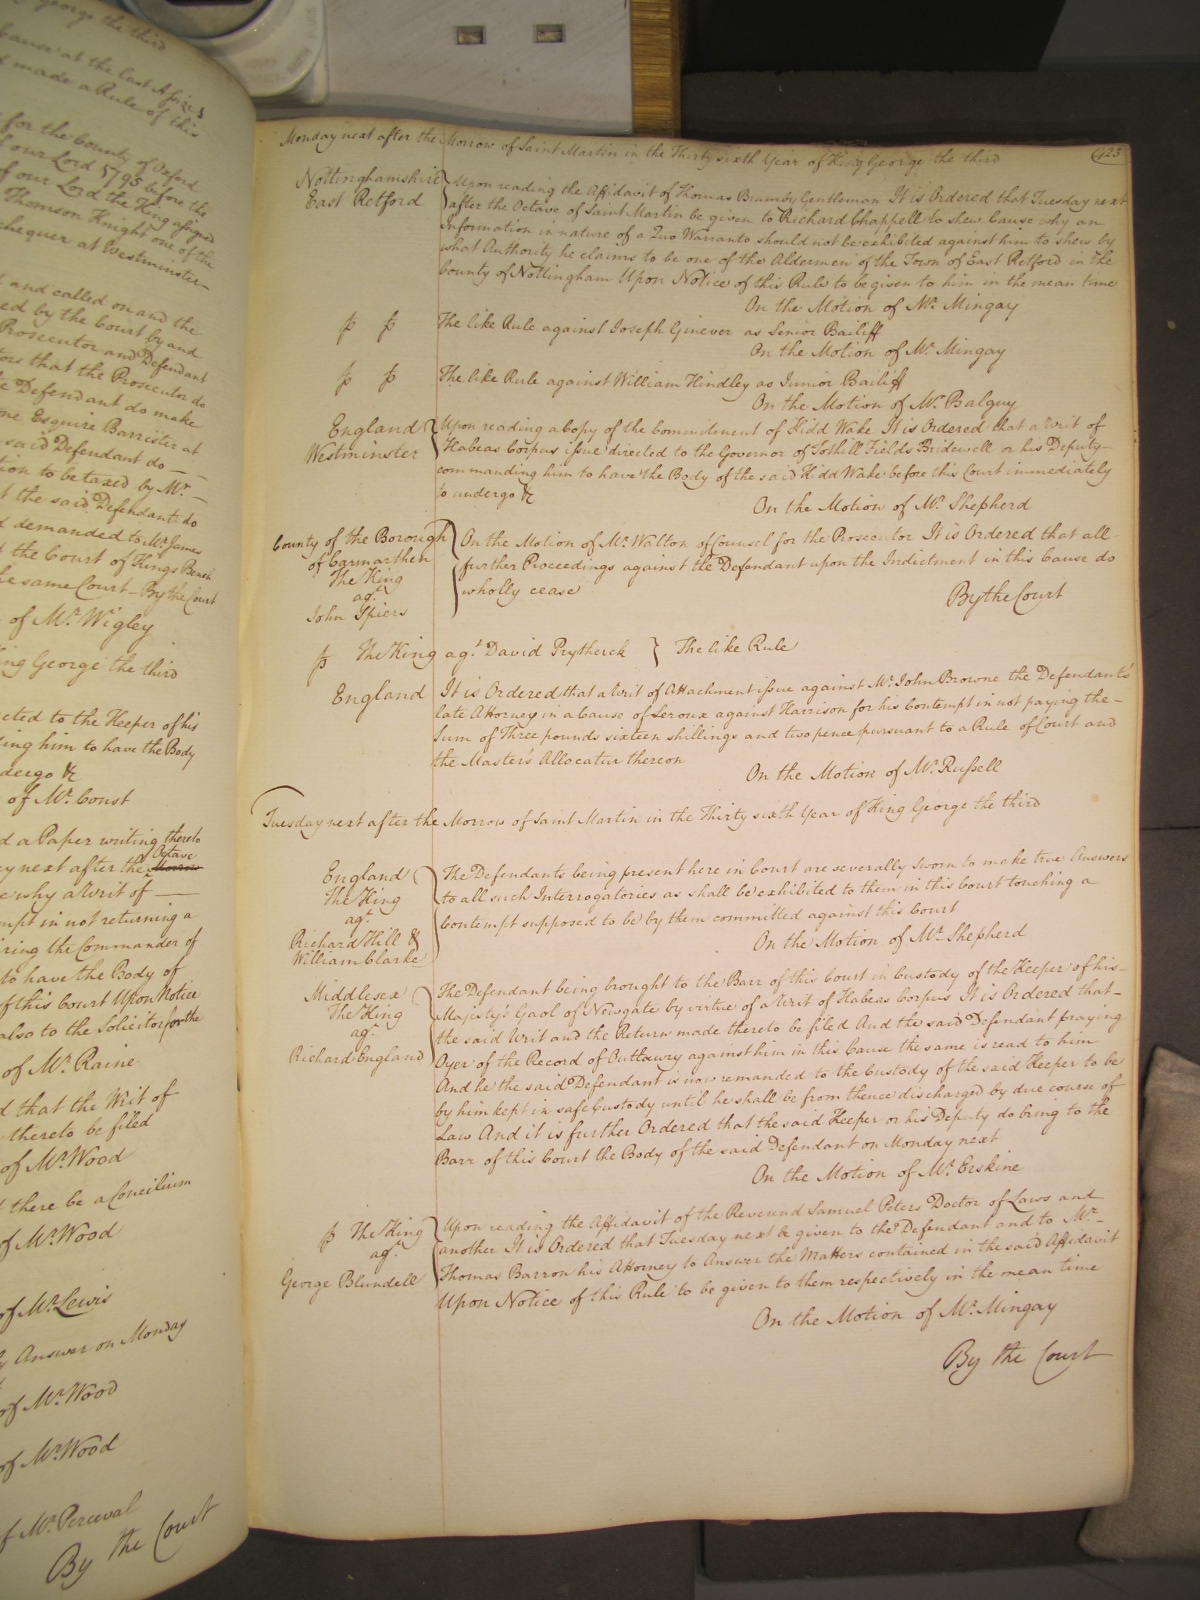 George the third
Cause at the last Assizes
made a Rule of this
for the County of Oxford
our Lord 1795 before the
of our Lord the King assigned
Thomson Knight one of the
chequer at Westminster
and called on and the
ed by the Court by and
Prosecutor and Defendant
tors that the Prosecutor do
Defendant do make
Esquire Barrister at
said Defendant do
tion to be taxed by Mr.
the said Defendant do
demanded to Mr. James
the Court of Kings Bench
he same Court - By the Court
of Mr. Wigley
King George the third
cted to the Keeper of his
ing him to have the Body
dergo &c
of Mr. Const
d a Paper writing thereto
Octave
ey next after the Morrow
why a Writ of
mpt in not returning a
ring the Commander of
to have the Body of
of this Court Upon Notice
also to the Solicitor for the
of Mr. Raine
d that the Writ of
thereto be filed
of Mr. Wood
there be a Concilium
of Mr. Wood
of Mr. Lewis
Answer on Monday
of Mr. Wood
of Mr. Wood
of Mr. Perceval
By the Court
Monday next after the Morrow of Saint Martin in the Thirty sixth Year of King George the third
123
Nottinghamshire
East Retford
Upon reading the Affidavit of Thomas Brumby Gentleman It is Ordered that Tuesday next
after the Octave of Saint Martin be given to Richard Chappell to shew Cause why an
Information in nature of a Quo Warranto should not be exhibited against him to shew by
what Authority he claims to be one of the Aldermen of the Town of East Retford in the
County of Nottingham Upon Notice of this Rule to be given to him in the mean time
On the Motion of Mr. Mingay
The like Rule against Joseph Ginever as Senior Bailiff
On the Motion of Mr. Mingay
The like Rule against William Hindley as Junior Bailiff
On the Motion of Mr. Balguy
England
Westminster
Upon reading a Copy of the Commitment of Kidd Wake It is Ordered that a Writ of
Habeas Corpus issue directed to the Governor of Tothill Fields Bridewell or his Deputy
commanding him to have the Body of the said Kidd Wake before this Court immediately
to undergo &c
On the Motion of Mr. Shepherd
County of the Borough
of Carmarthen
The King
agt.
John Spiers
On the Motion of Mr. Walton of Counsel for the Prosecutor It is Ordered that all
further Proceedings against the Defendant upon the Indictment in this Cause do
wholly cease
By the Court
The King agt. David Prytherck } The like Rule
England
It is Ordered that a Writ of Attachment issue against Mr. John Browne the Defendants'
late Attorney in a Cause of Leroux against Harrison for his Contempt in not paying the
Sum of Three pounds sixteen shillings and two pence pursuant to a Rule of Court and
the Master's Allocatur thereon
On the Motion of Mr. Russell
Tuesday next after the Morrow of Saint Martin in the Thirty sixth Year of King George the third
England
The King
agt.
Richard Hill &
William Clarke
The Defendants being present here in Court are severally Sworn to make true Answers
to all such Interrogatories as shall be exhibited to them in this Court touching a
Contempt supposed to be by them committed against this Court
On the Motion of Mr. Shepherd
Middlesex
The King
agt.
Richard England
The Defendant being brought to the Barr of this Court in Custody of the Keeper of his
Majesty's Gaol of Newgate by virtue of a Writ of Habeas Corpus It is Ordered that
the said Writ and the Return made thereto be filed And the said Defendant praying
Oyer of the Record of Outlawry against him in this Cause the same is read to him
And he the said Defendant is now remanded to the Custody of the said Keeper to be
by him kept in safe Custody until he shall be from thence discharged by due course of
Law And it is further Ordered that the said Keeper or his Deputy do bring to the
Barr of this Court the Body of the said Defendant on Monday next
On the Motion of Mr. Erskine
The King
agt.
George Blundell
Upon reading the Affidavit of the Reverend Samuel Peters Doctor of Laws and
another It is Ordered that Tuesday next be given to the Defendant and to Mr.
Thomas Barron his Attorney to Answer the Matters contained in the said Affidavit
Upon Notice of this Rule to be given to them respectively in the mean time
On the Motion of Mr. Mingay
By the Court